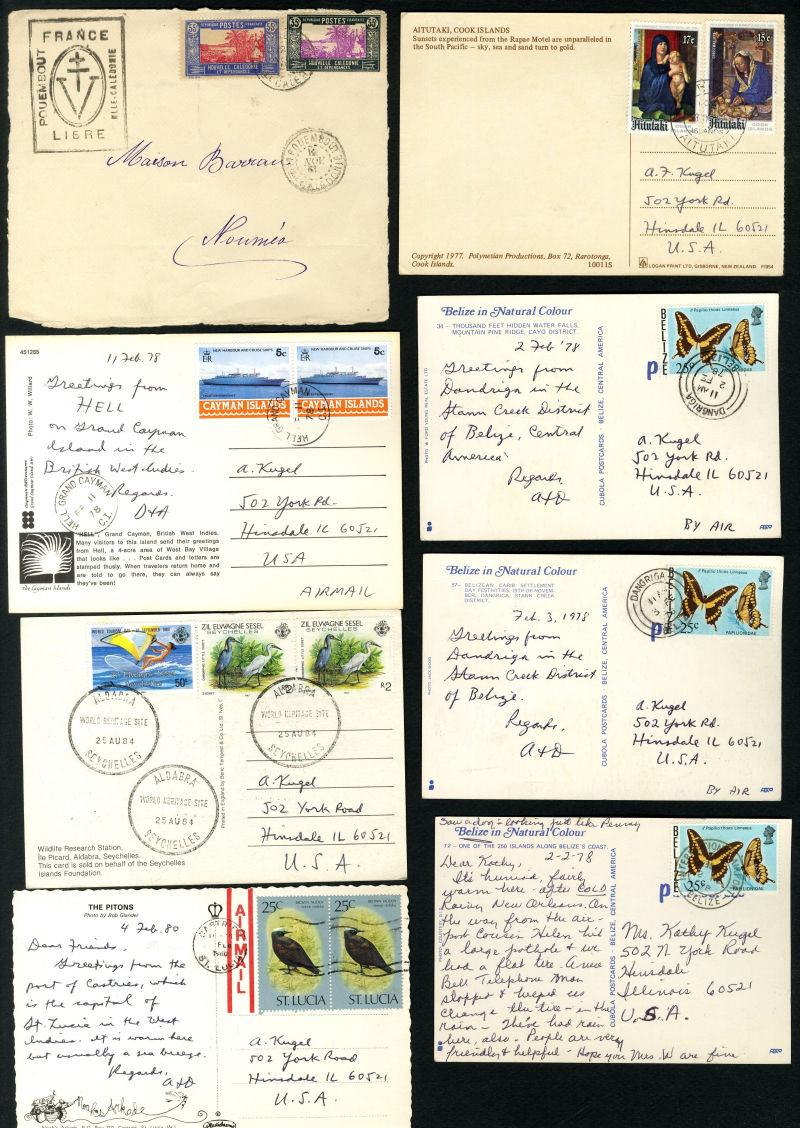 FRANCE
POUEMBOUT
NLLE-CALÉDONIE
LIBRE
RÉPUBLIQUE FRANÇAISE
55 POSTES 55
NOUVELLE CALÉDONIE
ET DÉPENDANCES
RÉPUBLIQUE FRANÇAISE
POSTES 35
NOUVELLE CALÉDONIE
ET DÉPENDANCES
POUEMBOUT
NOV
Maison Barrau
Nouméa
AITUTAKI, COOK ISLANDS
Sunsets experienced from the Rapae Motel are unparalleled in
the South Pacific – sky, sea and sand turn to gold.
17c
Aitutaki
COOK ISLANDS
15c
Aitutaki
COOK ISLANDS
AITUTAKI
A. F. Kugel
502 York Rd.
Hinsdale IL 60521
U.S.A.
Copyright 1977. Polynesian Productions, Box 72, Rarotonga,
Cook Islands.
10011S
LOGAN PRINT LTD, GISBORNE, NEW ZEALAND P/954
451265
11 Feb. 78
Greetings from
HELL
on Grand Cayman
Island in the
British West Indies.
Regards.
D+A
Photo: W. W. Willard
NEW HARBOUR AND CRUISE SHIPS
5c
EIIR
CAYMAN ISLANDS
NEW HARBOUR AND CRUISE SHIPS
5c
EIIR
CAYMAN ISLANDS
HELL GRAND CAYMAN
HELL GRAND CAYMAN
11 FE 78
C.I.
A. Kugel
502 York Rd.
Hinsdale IL 60521
USA
AIRMAIL
"HELL", Grand Cayman, British West Indies.
Many visitors to this island send their greetings
from Hell, a 4-acre area of West Bay Village
that looks like . . . Post Cards and letters are
stamped thusly. When travelers return home and
are told to go there, they can always say
they've been!
The Cayman Islands
Belize in Natural Colour
34 – THOUSAND FEET HIDDEN WATER FALLS,
MOUNTAIN PINE RIDGE, CAYO DISTRICT.
2 Feb '78
Greetings from
Dandriga in the
Stann Creek District
of Belize, Central
America.
Regards
A+D
CUBOLA POSTCARDS - BELIZE, CENTRAL AMERICA
BELIZE
Papilio thoas Linnaeus
25c
PAPILIONIDAE
DANGRIGA
BELIZE
11 AM
2 FE
78
A. Kugel
502 York Rd.
Hinsdale IL 60521
U.S.A.
BY AIR
Belize in Natural Colour
57– BELIZEAN CARIB SETTLEMENT
DAY FESTIVITIES, 19TH OF NOVEM-
BER, DANGRIGA, STANN CREEK
DISTRICT.
Feb. 3, 1978
Greetings from
Dandriga in the
Stann Creek District
of Belize.
Regards,
A+D
CUBOLA POSTCARDS - BELIZE, CENTRAL AMERICA
Papilio thoas Linnaeus
25c
PAPILIONIDAE
DANGRIGA
A. Kugel
502 York Rd.
Hinsdale IL 60521
U.S.A.
BY AIR
WORLD TOURISM DAY
50c
ZIL ELWAGNE SESEL
SEYCHELLES
ZIL ELWAGNE SESEL
SEYCHELLES
R2
ALDABRA
WORLD HERITAGE SITE
25 AU 84
SEYCHELLES
ALDABRA
WORLD HERITAGE SITE
25 AU 84
SEYCHELLES
ALDABRA
WORLD HERITAGE SITE
25 AU 84
SEYCHELLES
A. Kugel
502 York Road
Hinsdale IL 60521
U.S.A.
Wildlife Research Station,
Île Picard, Aldabra, Seychelles.
This card is sold on behalf of the Seychelles
Islands Foundation.
Saw a dog - looking just like Penney
Belize in Natural Colour
12 – ONE OF THE 250 ISLANDS ALONG BELIZE'S COAST.
2-2-78
Dear Kathy,
It's humid, fairly
warm here - after COLD
Rainy New Orleans. On
the way from the air-
port Cousin Helen hit
a large pothole & we
had a flat tire. A nice
Bell Telephone man
stopped & helped us
change the tire - in the
rain - They've had rain
here, also - People are very
friendly & helpful - Hope you Mrs. W are fine
CUBOLA POSTCARDS - BELIZE, CENTRAL AMERICA
BELIZE
Papilio thoas Linnaeus
25c
PAPILIONIDAE
BELIZE
Ms. Kathy Kugel
502 N. York Road
Hinsdale
Illinois 60521
U.S.A.
THE PITONS
Photo by Bob Glander
4 Feb. 80
Dear Friends,
Greetings from the
port of Castries, which
is the capital of
St. Lucia in the West
Indies. It is warm here
but usually a sea breeze.
Regards,
A+D
AIRMAIL
CASTRIES
ST. LUCIA
BROWN NODDY
25c
ST. LUCIA
BROWN NODDY
25c
ST. LUCIA
A. Kugel
502 York Road
Hinsdale IL 60521
U.S.A.
Noah's Arkade